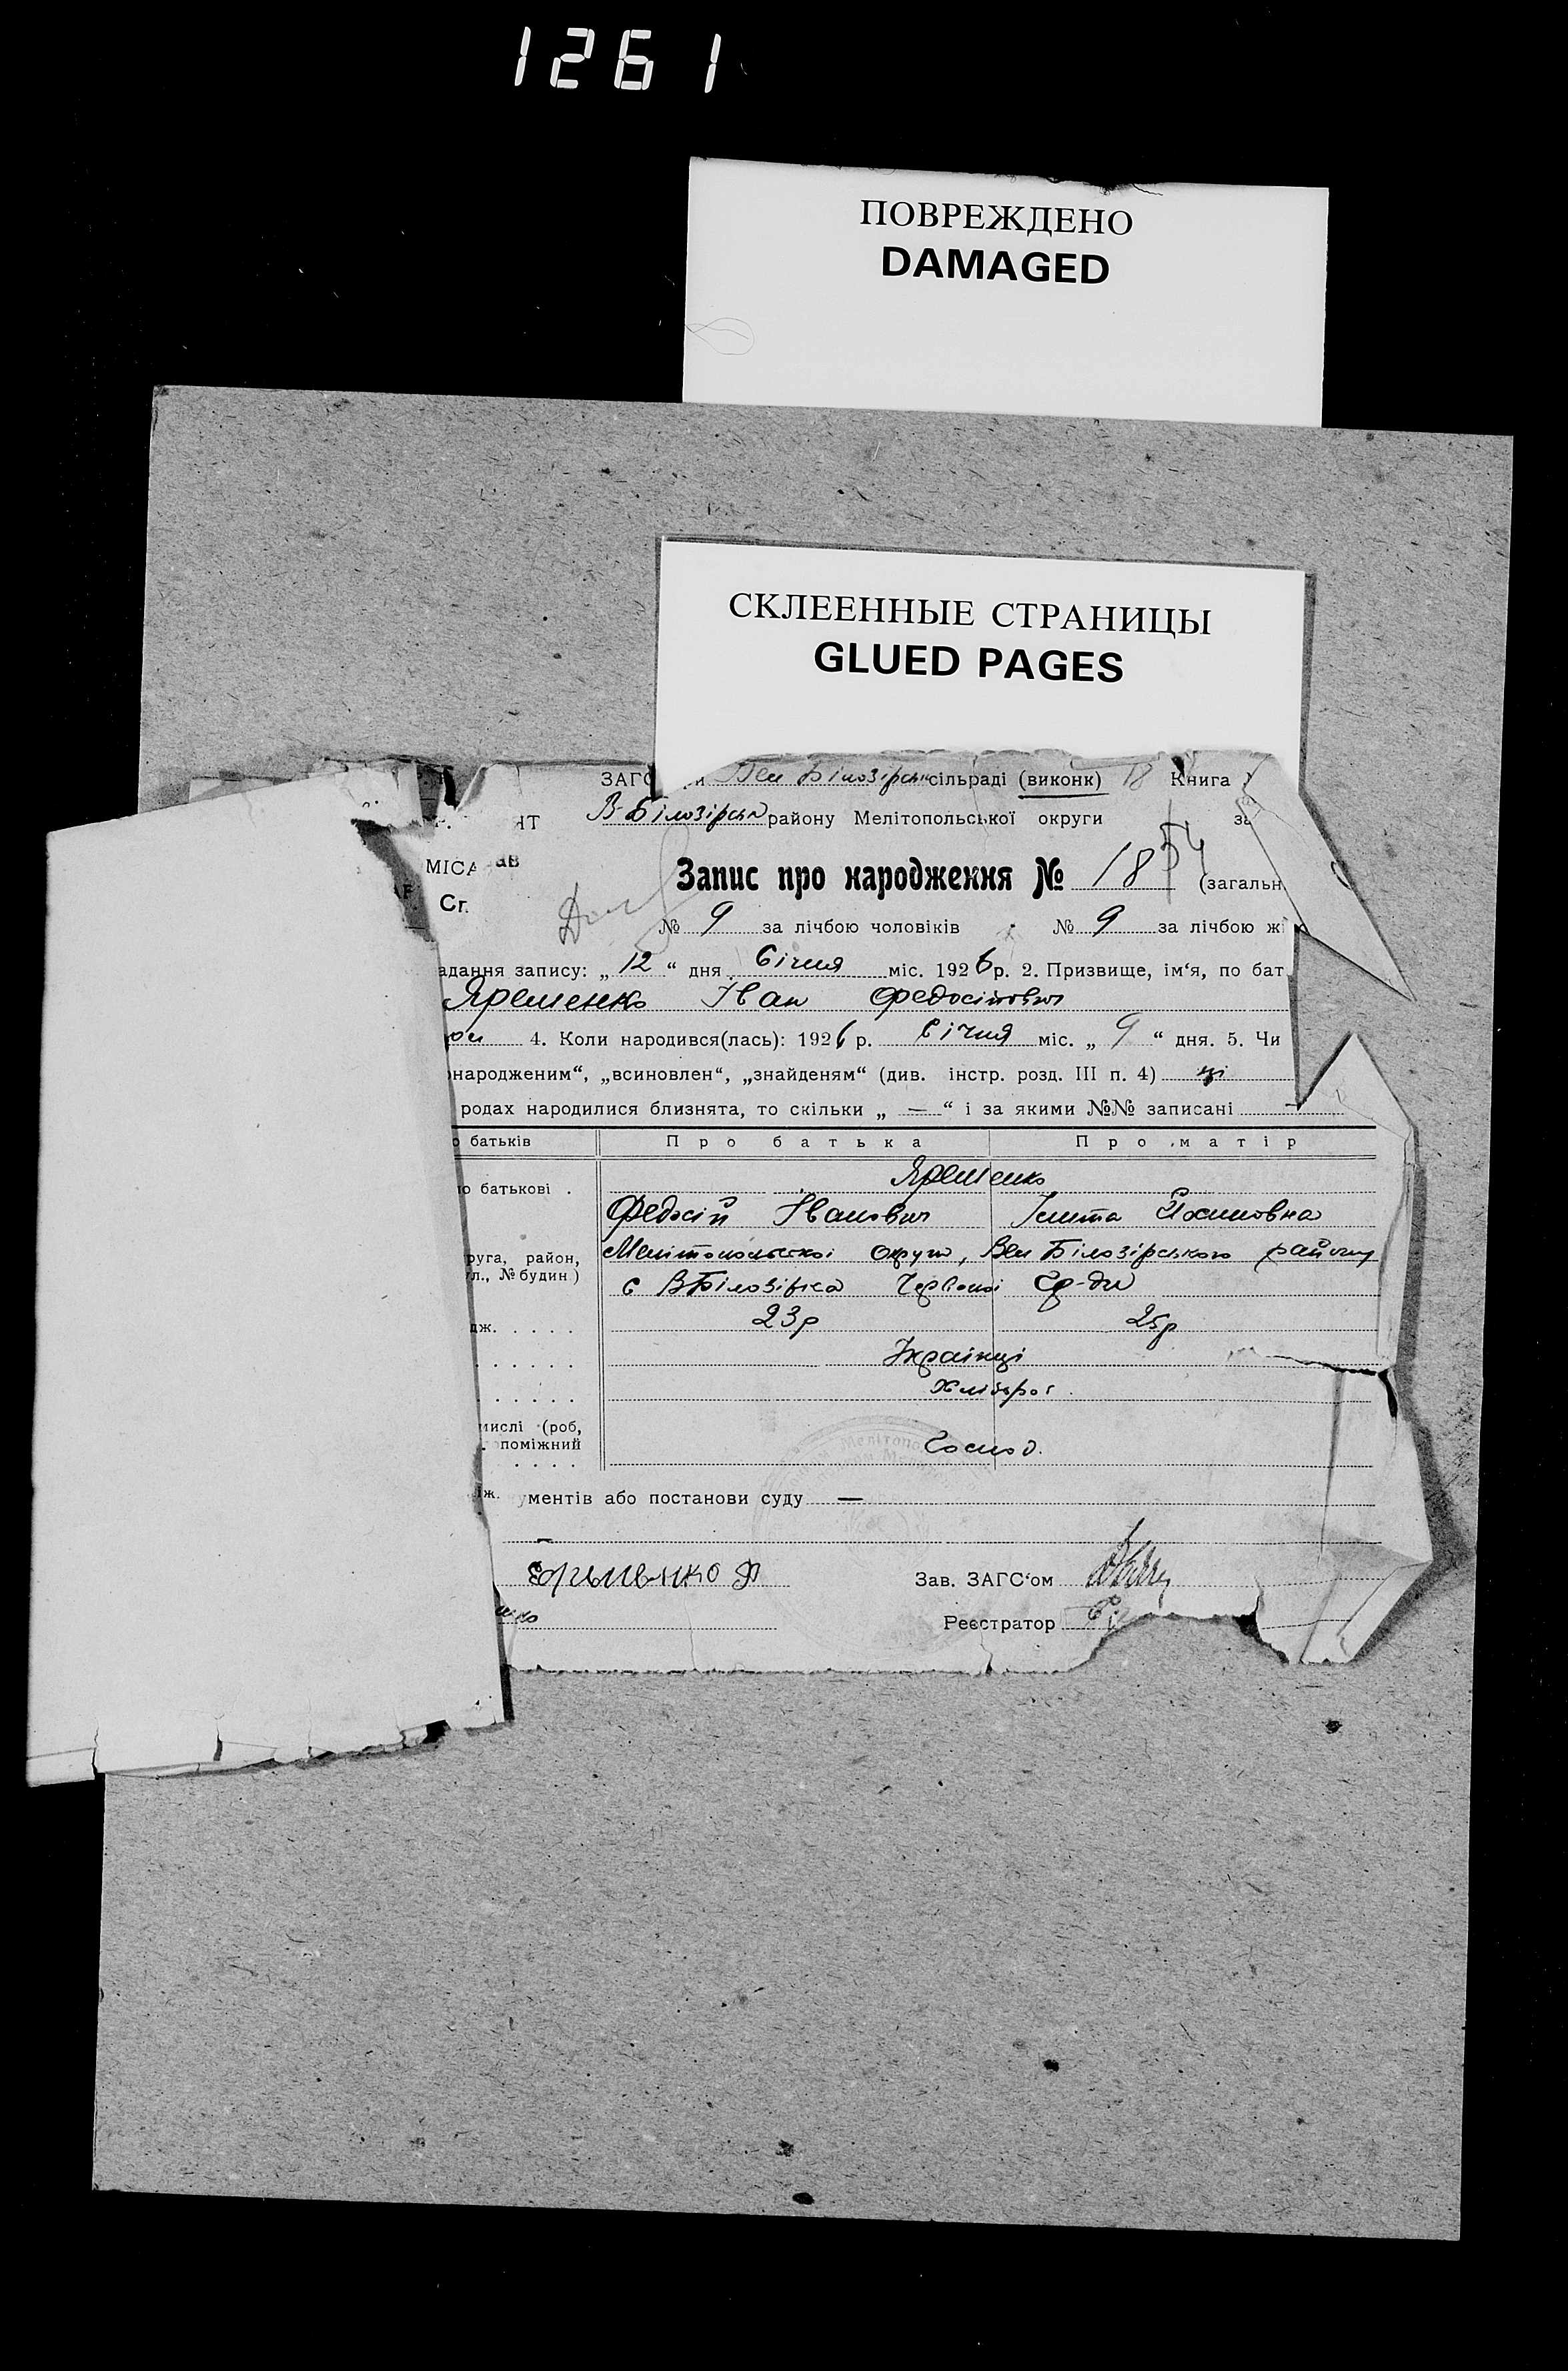 1261
ПОВРЕЖДЕНО
DAMAGED
СКЛЕЕННЫЕ СТРАНИЦЫ
GLUED PAGES
ЗАГС Вел Білозірськ сільраді (виконк) 18 Книга
В-Білозірськ району Мелітопольської округи
МІСА
Запис про народження № 18 54 (загальн
№ 9 за лічбою чоловіків № 9 за лічбою ж
адання запису: „ 12 “ дня Січня міс. 1926 р. 2. Призвище, ім‘я, по бат
Яременко Іван Федосійович
4. Коли народився(лась): 1926 р. Січня міс. „ 9 “ дня. 5. Чи
народженим“, „всиновлен“, „знайденям“ (див. інстр. розд. III п. 4) ні
родах народилися близнята, то скільки „ — “ і за якими №№ записані —
батьків Про батька Про матір
Яременко
о батькові .
Федосій Іванович Йосиповна
Мелітопольської округи, Вел Білозірського району
руга, район,
л., № будин.)
с ВБілозірка Червоної
дж. . . . . 23р 25р
Українці
Хлібороб
мислі (роб,
поміжний
Господ.
ументів або постанови суду —
—
Зав. ЗАГС‘ом
Реєстратор